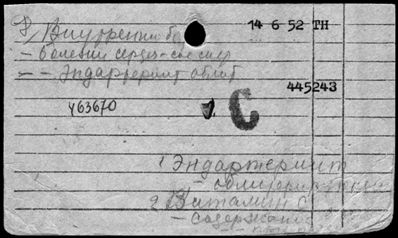 14 6 52 TH
Внутренни бо
- болезни сердеч-сос сист
- - Эндартериит облит
445243
У63670
С
1 Эндартериит
- облитерирующий
2 Витамин С
- содержание